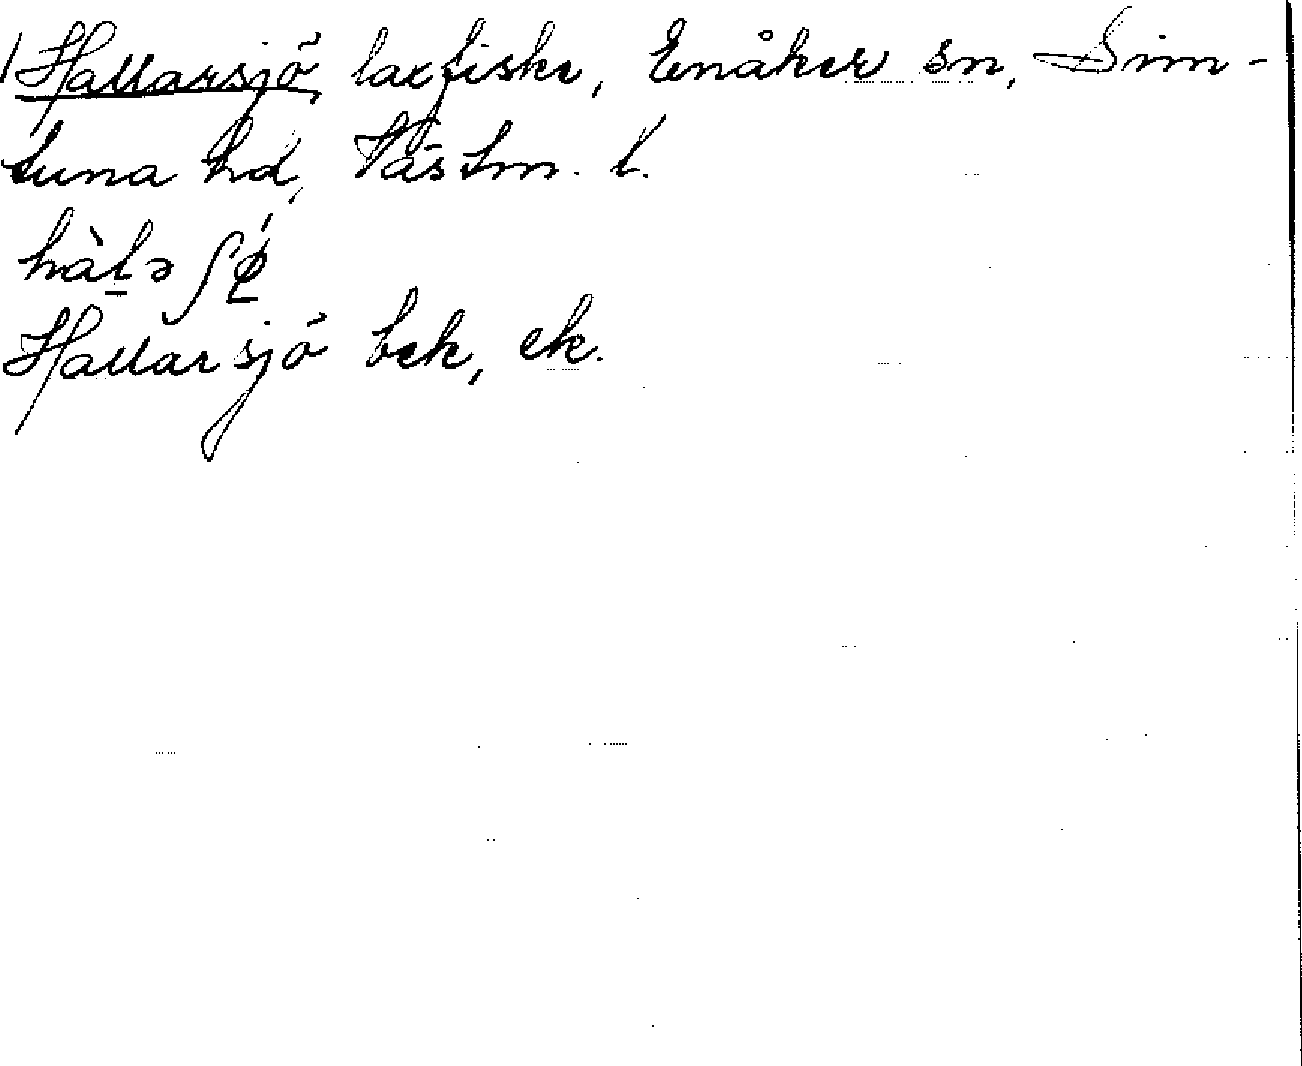 Hallarsjö laxfiske, Enåker sn, Sim-
tuna hd, Västm. l.
Hallarsjö bek, ek.